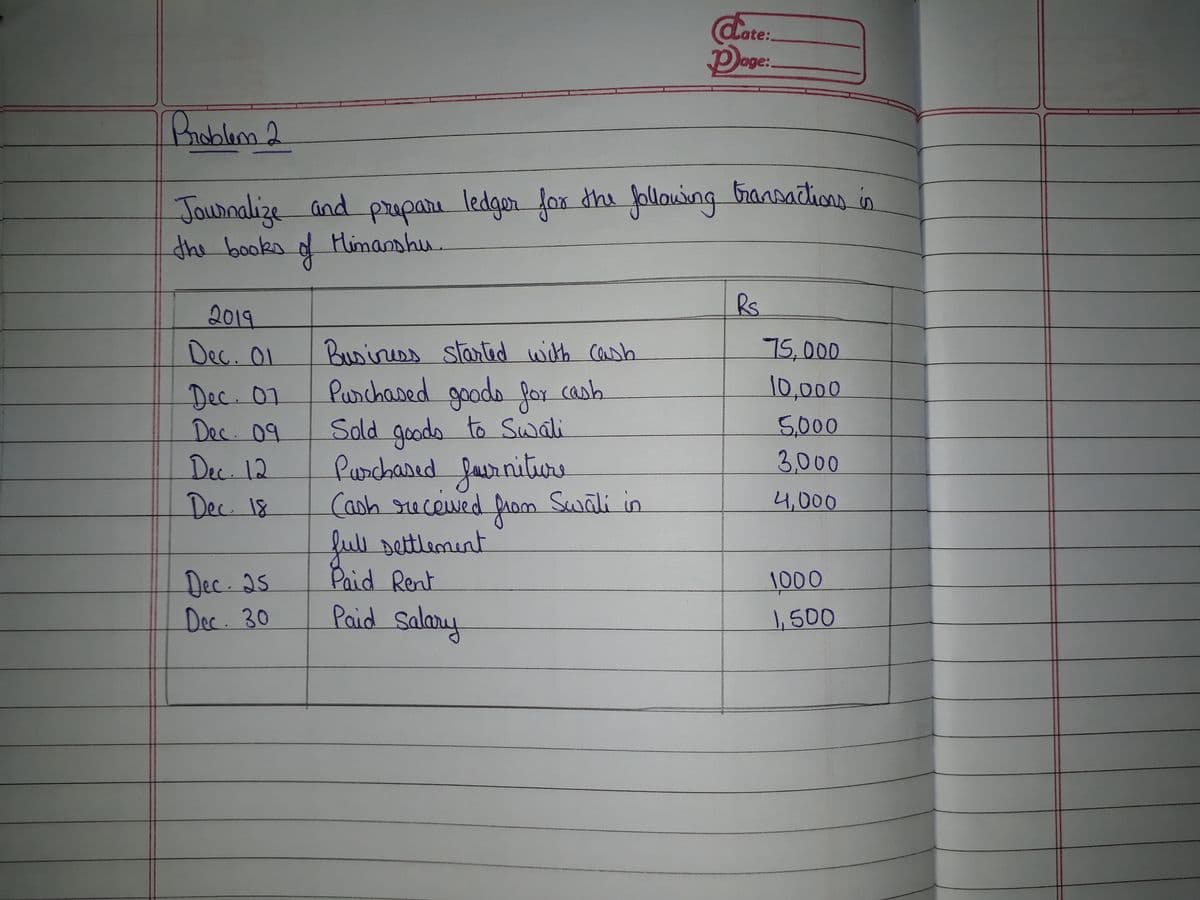 Date:
Page:
Problem 2
Journalize and prepare ledger for the following transactions in
the books of Himanshu.
2019 Rs
Dec. 01 Business started with cash 75,000
Dec. 07 Purchased goods for cash 10,000
Dec. 09 Sold goods to Swāti 5,000
Dec. 12 Purchased furniture 3,000
Dec. 18 Cash received from Swāti in 4,000
full settlement
Dec. 25 Paid Rent 1000
Dec. 30 Paid Salary 1,500